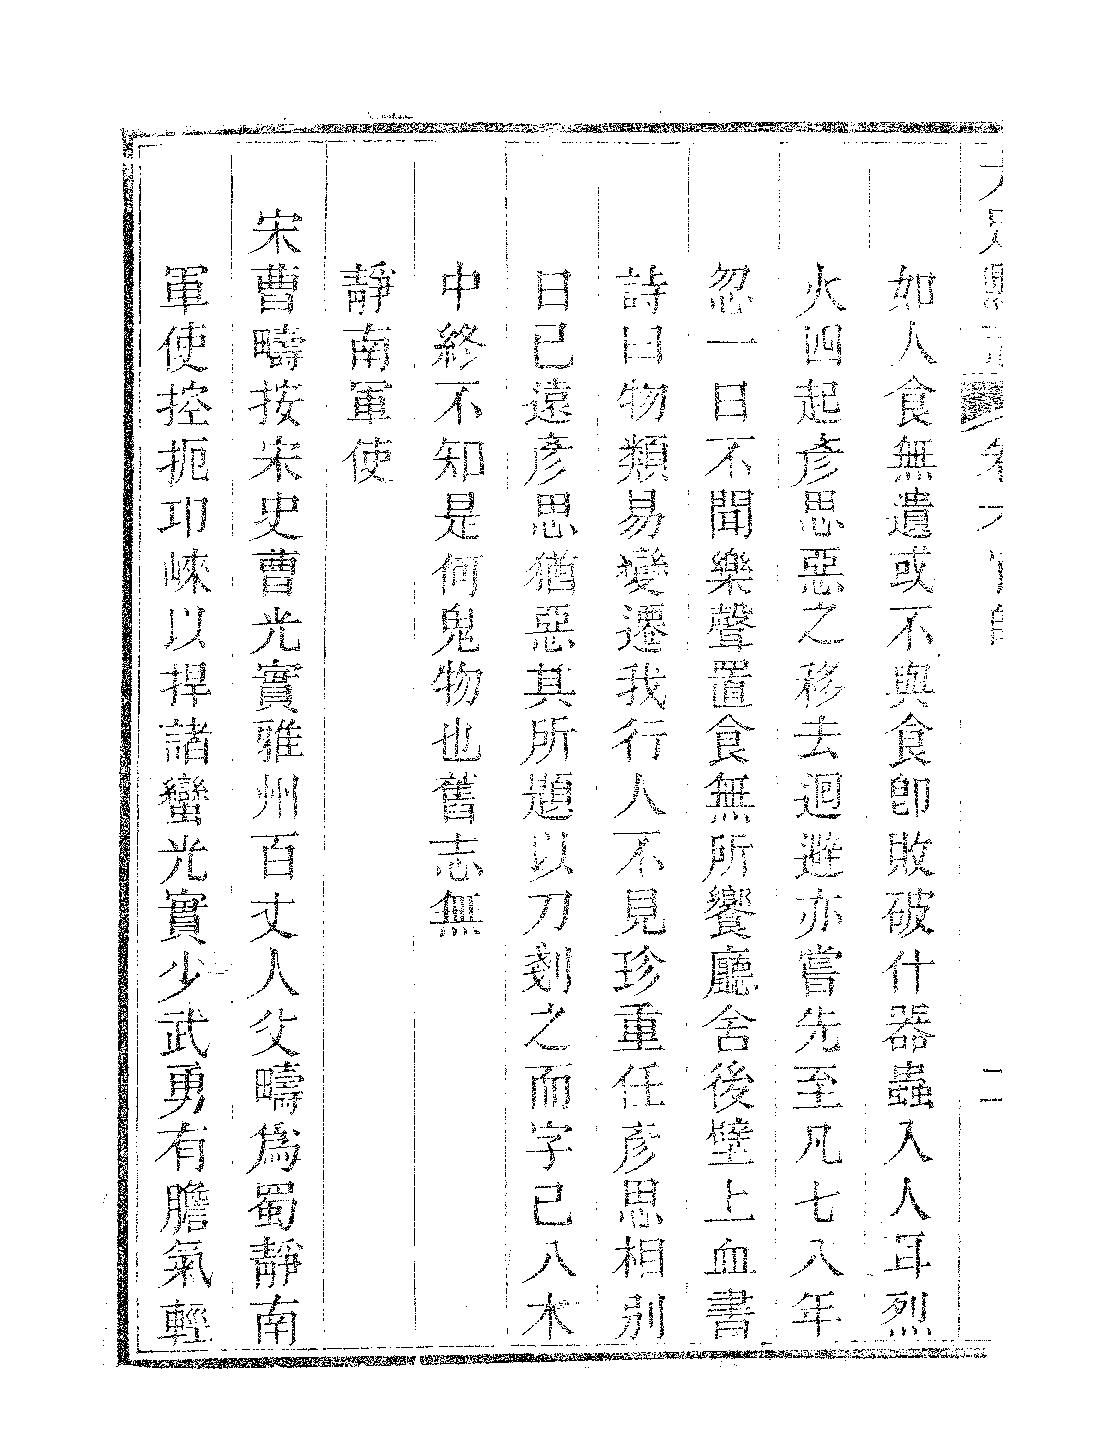 如人食無遺或不與食卽敗破什器蟲入人耳烈
火四起彥思惡之移去迴避亦嘗先至凡七八年
忽一日不聞樂聲置食無所饗廳舍後壁上血書
詩曰物類易變遷我行人不見珍重任彥思相別
日已遠彥思猶惡其所題以刀剗之而字已入木
中終不知是何鬼物也舊志無
靜南軍使
宋曹疇按宋史曹光實雅州百丈人父疇爲蜀靜南
軍使控扼卭崍以捍諸蠻光實少武勇有膽氣輕